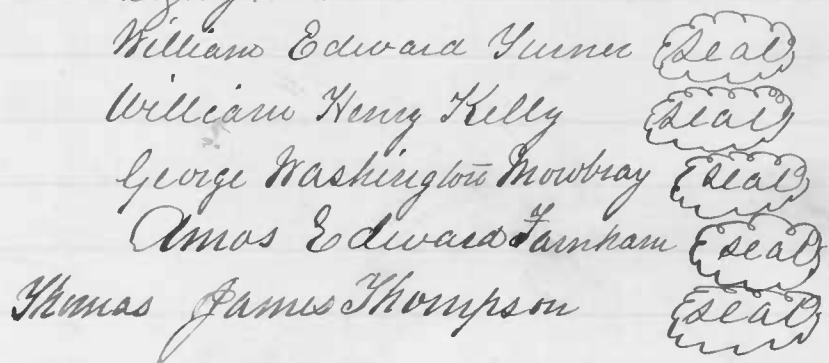 William Edward Turner Seal
William Henry Kelly Seal
George Washington Mowbray Seal
Amos Edward Farnham Seal
Thomas James Thompson Seal